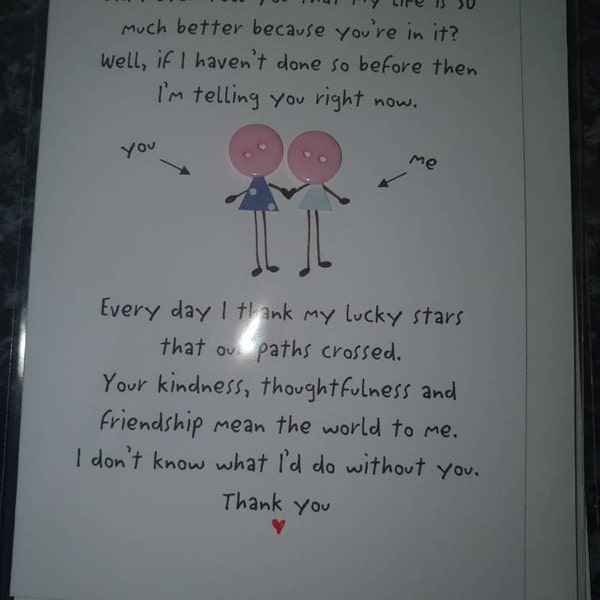 you that my life is so
much better because you're in it?
Well, if I haven't done so before then
I'm telling you right now.
you
me
Every day I thank my lucky stars
that our paths crossed.
Your kindness, thoughtfulness and
friendship mean the world to me.
I don't know what I'd do without you.
Thank you